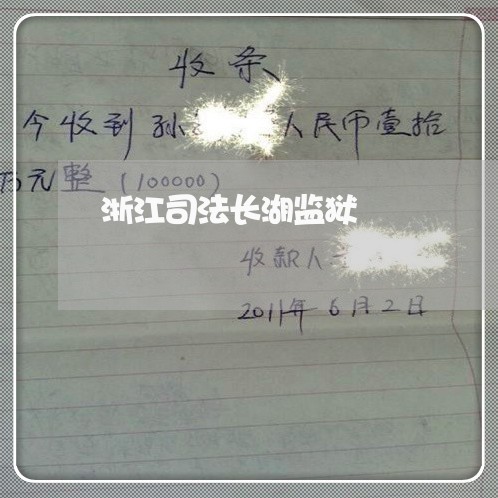 收条
今收到孙 人民币壹拾
万元整(100000)
浙江司法长湖监狱
收款人
2011年6月2日